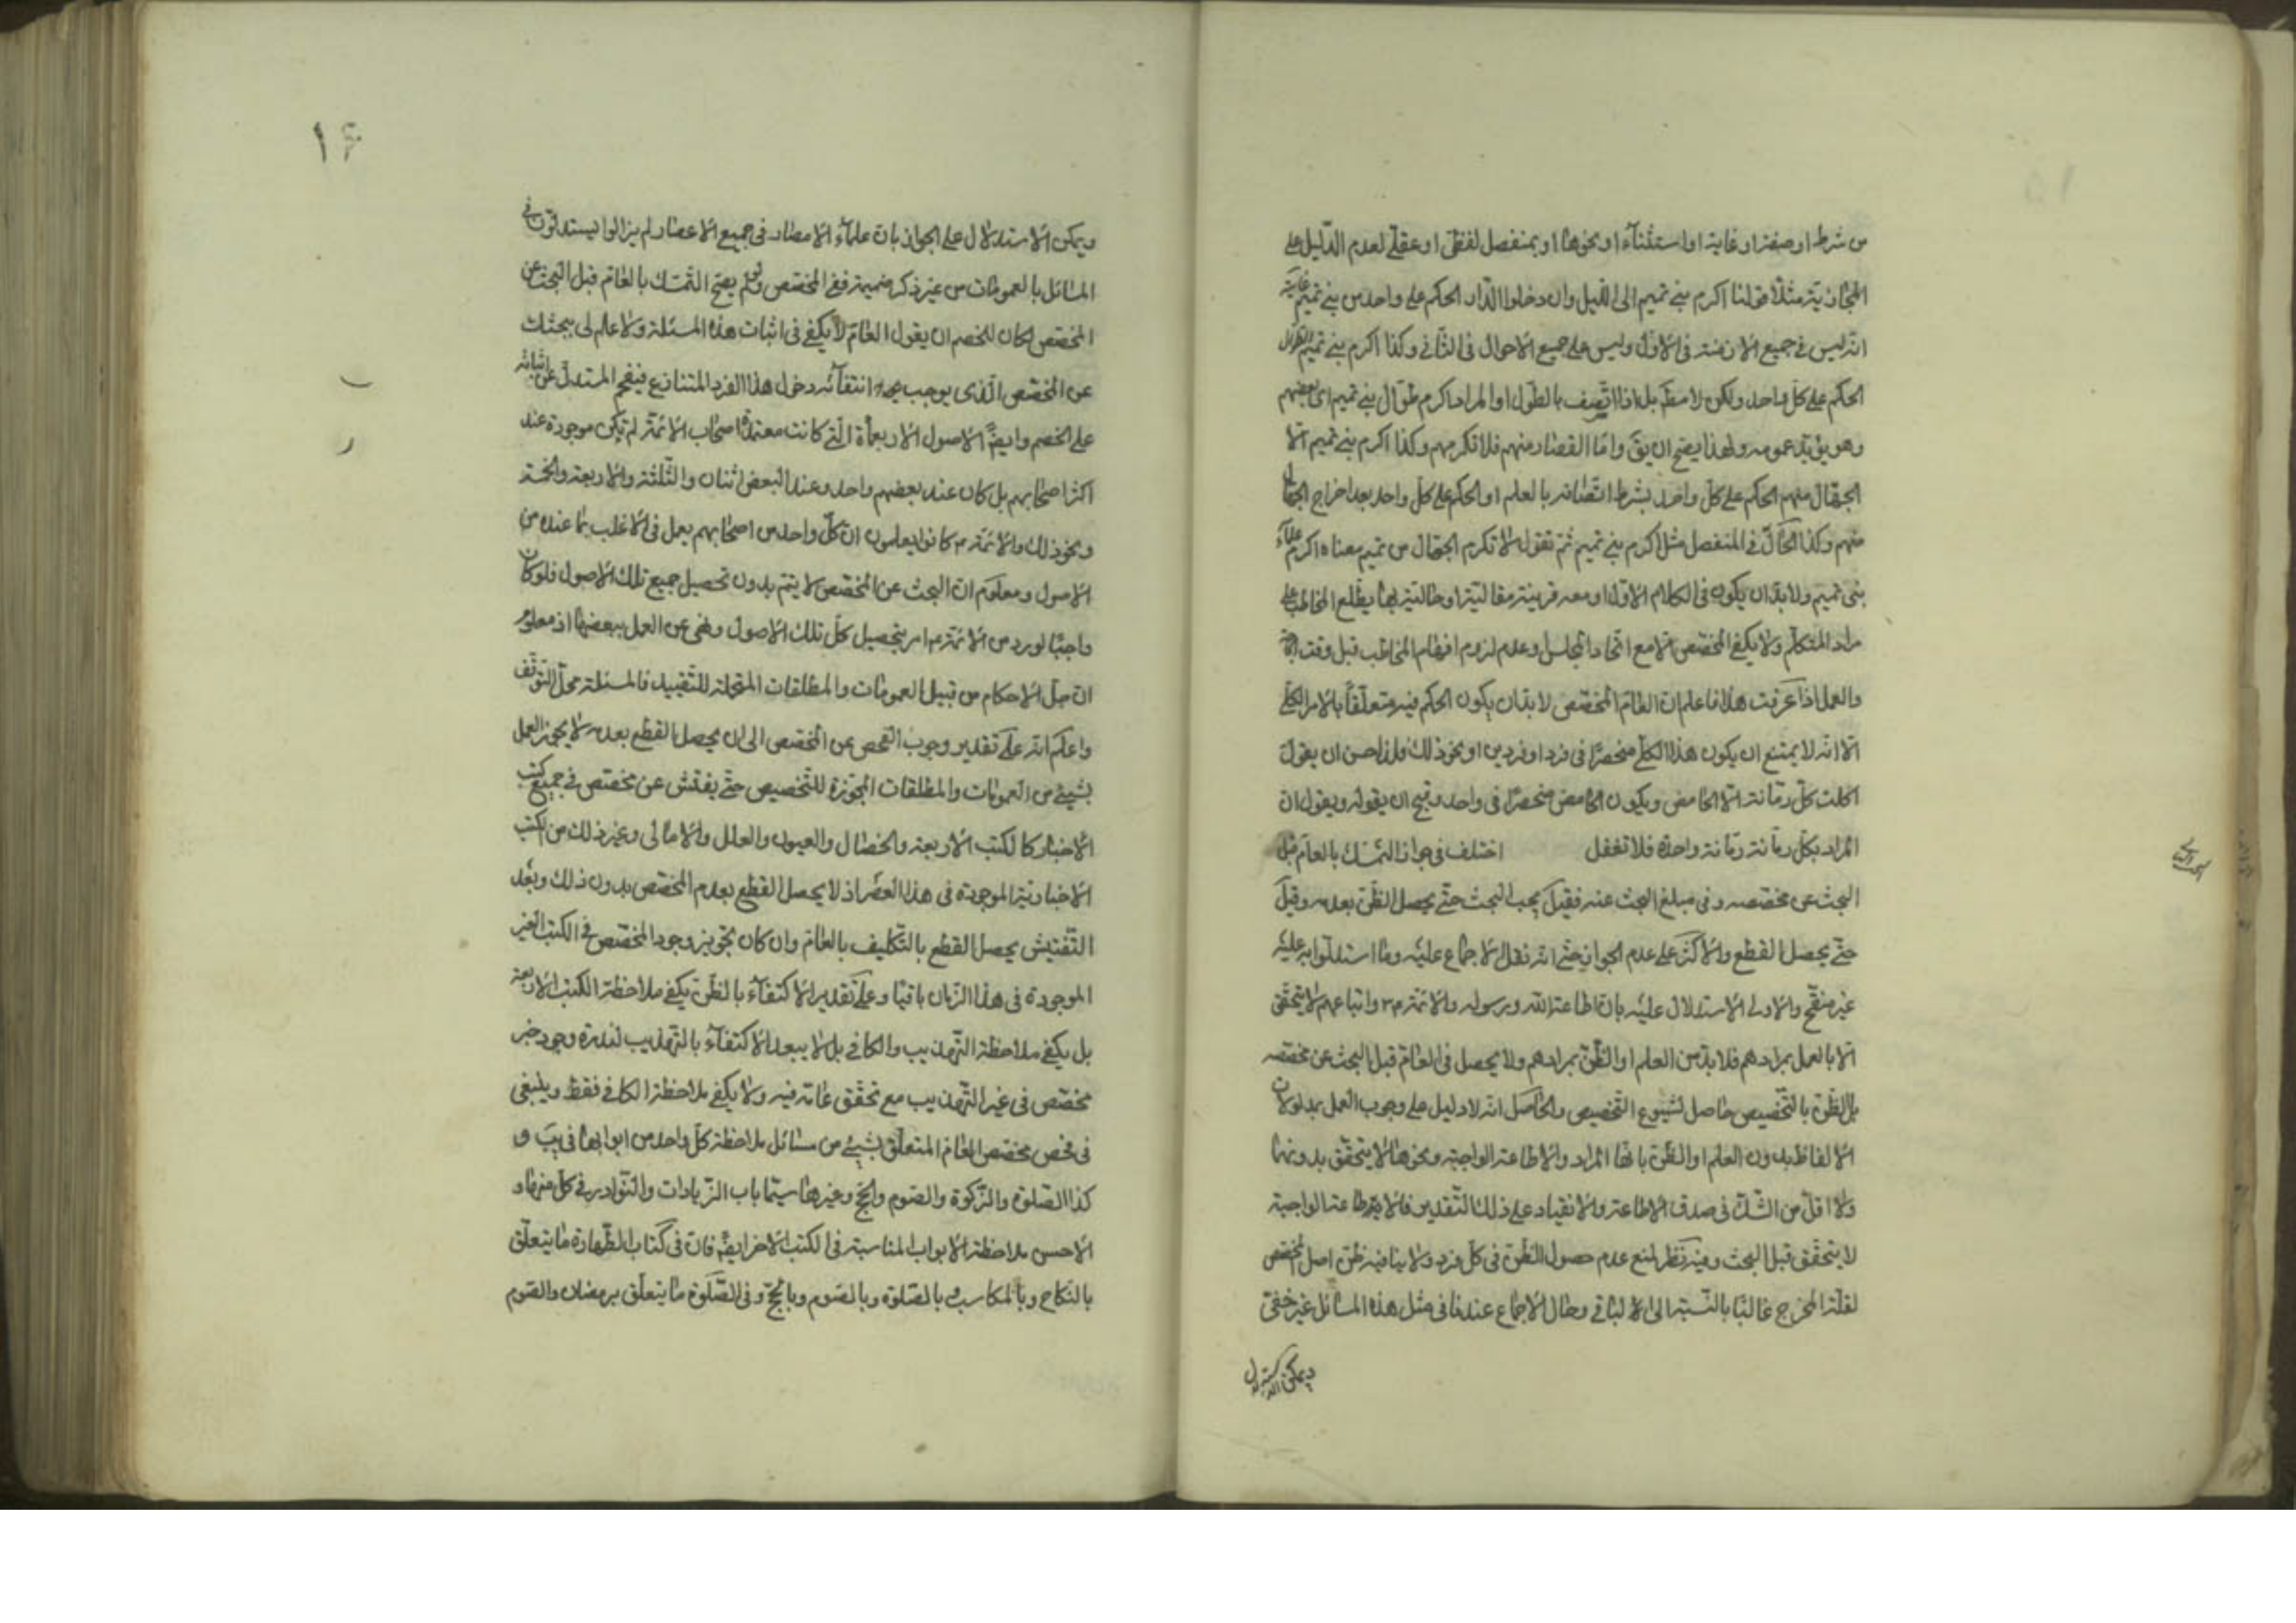 من شرط او صفة او غاية او استثناء او نحوها او بمنفصل لفظي او عقلي لعدم الدليل على
المجازية مثلا قولنا اكرم بني تميم الى الليل وان دخلوا الدار الحكم على واحد من بني تميم غايته
انه ليس في جميع الازمنة في الاول وليس على جميع الاحوال في الثاني وكذا اكرم بني تميم الطوال
الحكم على كل واحد ولكن لا مطلقا بل اذا اتصف بالطول او المراد اكرم طوال بني تميم اى بعضهم
وهو يؤيد عمومه ولهذا يصح ان يق واما القصار منهم فلا تكرمهم وكذا اكرم بني تميم الا
الجهال منهم الحكم على كل واحد بشرط اتصافه بالعلم او الحكم على كل واحد بعد اخراج الجهال
منهم وكذا الحال في المنفصل مثل اكرم بني تميم ثم تقول لا تكرم الجهال من تميم معناه اكرم علماء
بني تميم ولا بد ان يكون في الكلام الاول او معه قرينة مقالية او حالية بها يطلع المخاطب على
مراد المتكلم ولا يكفي المخصص الا مع اتحاد المجلس وعدم لزوم افهام المخاطب قبل وقت الحاجة
والعمل اذا عرفت هذا فاعلم ان العام المخصص لا بد ان يكون الحكم فيه متعلقا بالامر الكلي
الا انه لا يمتنع ان يكون هذا الكلي منحصرا في فرد او فردين او نحو ذلك ولذا حسن ان يقول
اكلت كل رمانة الا الحامض ويكون الحامض منحصرا في واحد وقبح ان يقوله ويقول ان
المراد بكل رمانة رمانة واحدة فلا تغفل اختلف في جواز التمسك بالعام قبل
البحث عن مخصصه وفي مبلغ البحث عنه فقيل يجب البحث حتى يحصل الظن بعدمه وقيل
حتى يحصل القطع والاكثر على عدم الجواز حتى انه نقل الاجماع عليه وما استدلوا به عليه
غير منقح والاولى الاستدلال عليه بان اطاعة الله ورسوله والائمة م واتباعهم لا يتحقق
الا بالعمل بمرادهم فلا بد من العلم او الظن بمرادهم ولا يحصل في العام قبل البحث عن مخصصه
بل الظن بالتخصيص حاصل لشيوع التخصيص والحاصل انه لا دليل على وجوب العمل بمدلولات
الالفاظ بدون العلم او الظن بانها المراد والاطاعة الواجبة ونحوها لا يتحقق بدونهما
ولا اقل من الشك في صدق الاطاعة والانقياد على ذلك التقدير فالاطاعة الواجبة
لا يتحقق قبل البحث وفيه نظر لمنع عدم حصول الظن في كل فرد ولا ينافيه ظن اصل المخصص
لقلة المخرج غالبا بالنسبة الى الباقي وحال الاجماع عندنا في مثل هذه المسائل غير خفي
ويمكن الاستدلال
ويمكن الاستدلال على الجواز بان علماء الامصار في جميع الاعصار لم يزالوا يستدلون في
المسائل بالعمومات من غير ذكر ضميمة نفي المخصص ولو لم يصح التمسك بالعام قبل البحث عن
المخصص لكان للخصم ان يقول العام لا يكفي في اثبات هذه المسئلة ولا علم لى ببحثك
عن المخصص الذى يوجب انتفائه دخول هذا الفرد المتنازع فيفحم المستدل عن اثباته
على الخصم وايضا الاصول الاربعمأة التي كانت معتمد اصحاب الائمة لم تكن موجودة عند
اكثر اصحابهم بل كان عند بعضهم واحد وعند البعض اثنان والثلثة والاربعة والخمسة
ونحو ذلك والائمة م كانوا يعلمون ان كل واحد من اصحابهم يعمل في الاغلب بما عنده من
الاصول ومعلوم ان البحث عن المخصص لا يتم بدون تحصيل جميع تلك الاصول فلو كان
واجبا لورد من الائمة م امر بتحصيل كل تلك الاصول ونهى عن العمل ببعضها اذ معلوم
ان جل الاحكام من قبيل العمومات والمطلقات المحتملة للتقييد فالمسئلة محل التوقف
واعلم انه على تقدير وجوب التفحص عن المخصص الى ان يحصل القطع بعدمه لا يجوز العمل
بشيئ من العمومات والمطلقات المجوزة للتخصيص حتى يفتش عن مخصص في جميع كتب
الاخبار كالكتب الاربعة والخصال والعيون والعلل والامالى وغير ذلك من الكتب
الاخبارية الموجودة في هذا العصر اذ لا يحصل القطع بعدم المخصص بدون ذلك وبعد
التفتيش يحصل القطع بالتكليف بالعام وان كان تجويز وجود المخصص في الكتب الغير
الموجودة في هذا الزمان باقيا وعلى تقدير الاكتفاء بالظن يكفي ملاحظة الكتب الاربعة
بل يكفي ملاحظة التهذيب والكافي بل لا يبعد الاكتفاء بالتهذيب لندرة وجود خبر
مخصص في غير التهذيب مع تحقق عامه فيه ولا يكفي ملاحظة الكافي فقط وينبغي
في فحص مخصص العام المتعلق بشيئ من مسائل ملاحظة كل واحد من ابوابها في يب و
كذا الصلوة والزكوة والصوم والحج وغيرها سيما باب الزيادات والنوادر في كل منها و
الاحسن ملاحظة الابواب المناسبة في الكتب الاخر ايضا فان في كتاب الطهارة ما يتعلق
بالنكاح وبالمكاسب وبالصلوة وبالصوم وبالحج وفي الصلوة ما يتعلق برمضان والصوم